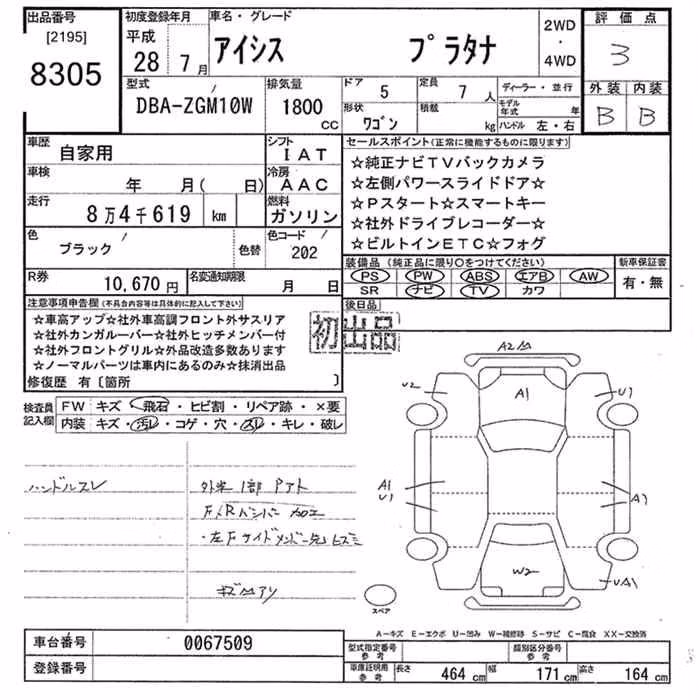 出品番号 初度登録年月 車名・グレード 2WD ・ 4WD 評価点
[2195] 平成
8305 28 7月 アイシス プラタナ 3
型式 排気量 ドア 5 定員 7 人 ディーラー・並行 外装 内装
DBA-ZGM10W 1800 CC 形状 ワゴン 積載 kg モデル年式 年 B B
ハンドル 左・右
車歴 自家用 シフト IAT
車検 年 月( 日) 冷房 AAC
走行 8万4千619 km 燃料 ガソリン
色 ブラック 色替 色コード 202
R券 10,670円 名変通知期限 月 日
セールスポイント(正常に機能するものに限ります)
☆純正ナビTVバックカメラ
☆左側パワースライドドア☆
☆Pスタート☆スマートキー
☆社外ドライブレコーダー☆
☆ビルトインETC☆フォグ
装備品(純正品に限り○をつけてください) 新車保証書
PS PW ABS エアB AW 有・無
SR ナビ TV カワ
後日品
注意事項申告欄(不具合内容等は具体的に記入して下さい)
☆車高アップ☆社外車高調フロント外サスリア
☆社外カンガルーバー☆社外ヒッチメンバー付
☆社外フロントグリル☆外品改造多数あります
☆ノーマルパーツは車内にあるのみ☆抹消出品
修復歴 有〔箇所 〕
初出品
検査員記入欄 FW キズ・飛石・ヒビ割・リペア跡・×要
内装 キズ・汚レ・コゲ・穴・スレ・キレ・破レ
ハンドルスレ
F/Rバンパー加工
A2
U2 A1 U1
A1
U1
W2
スペア
A-キズ E-エクボ U-凹み W-補修跡 S-サビ C-腐食 XX-交換済
車台番号 0067509
登録番号
型式指定番号 参考 類別区分番号 参考
車庫証明用 参考 長さ 464 cm 幅 171 cm 高さ 164 cm